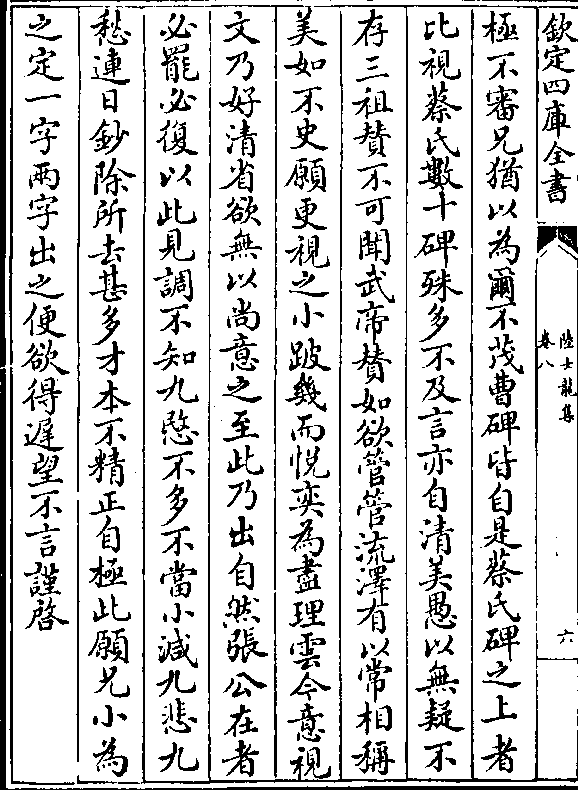 欽定四庫全書
陸士龍集
卷八
六
極不審兄猶以為爾不茂曹碑皆自是蔡氏碑之上者
比視蔡氏數十碑殊多不及言亦自清美愚以無疑不
存三祖賛不可聞武帝賛如欲管管流澤有以常相稱
美如不史願更視之小跛幾而悦奕為盡理雲今意視
文乃好清省欲無以尚意之至此乃出自然張公在者
必罷必復以此見調不知九愍不多不當小減九悲九
愁連日鈔除所去甚多才本不精正自極此願兄小為
之定一字兩字出之便欲得遲望不言謹啓